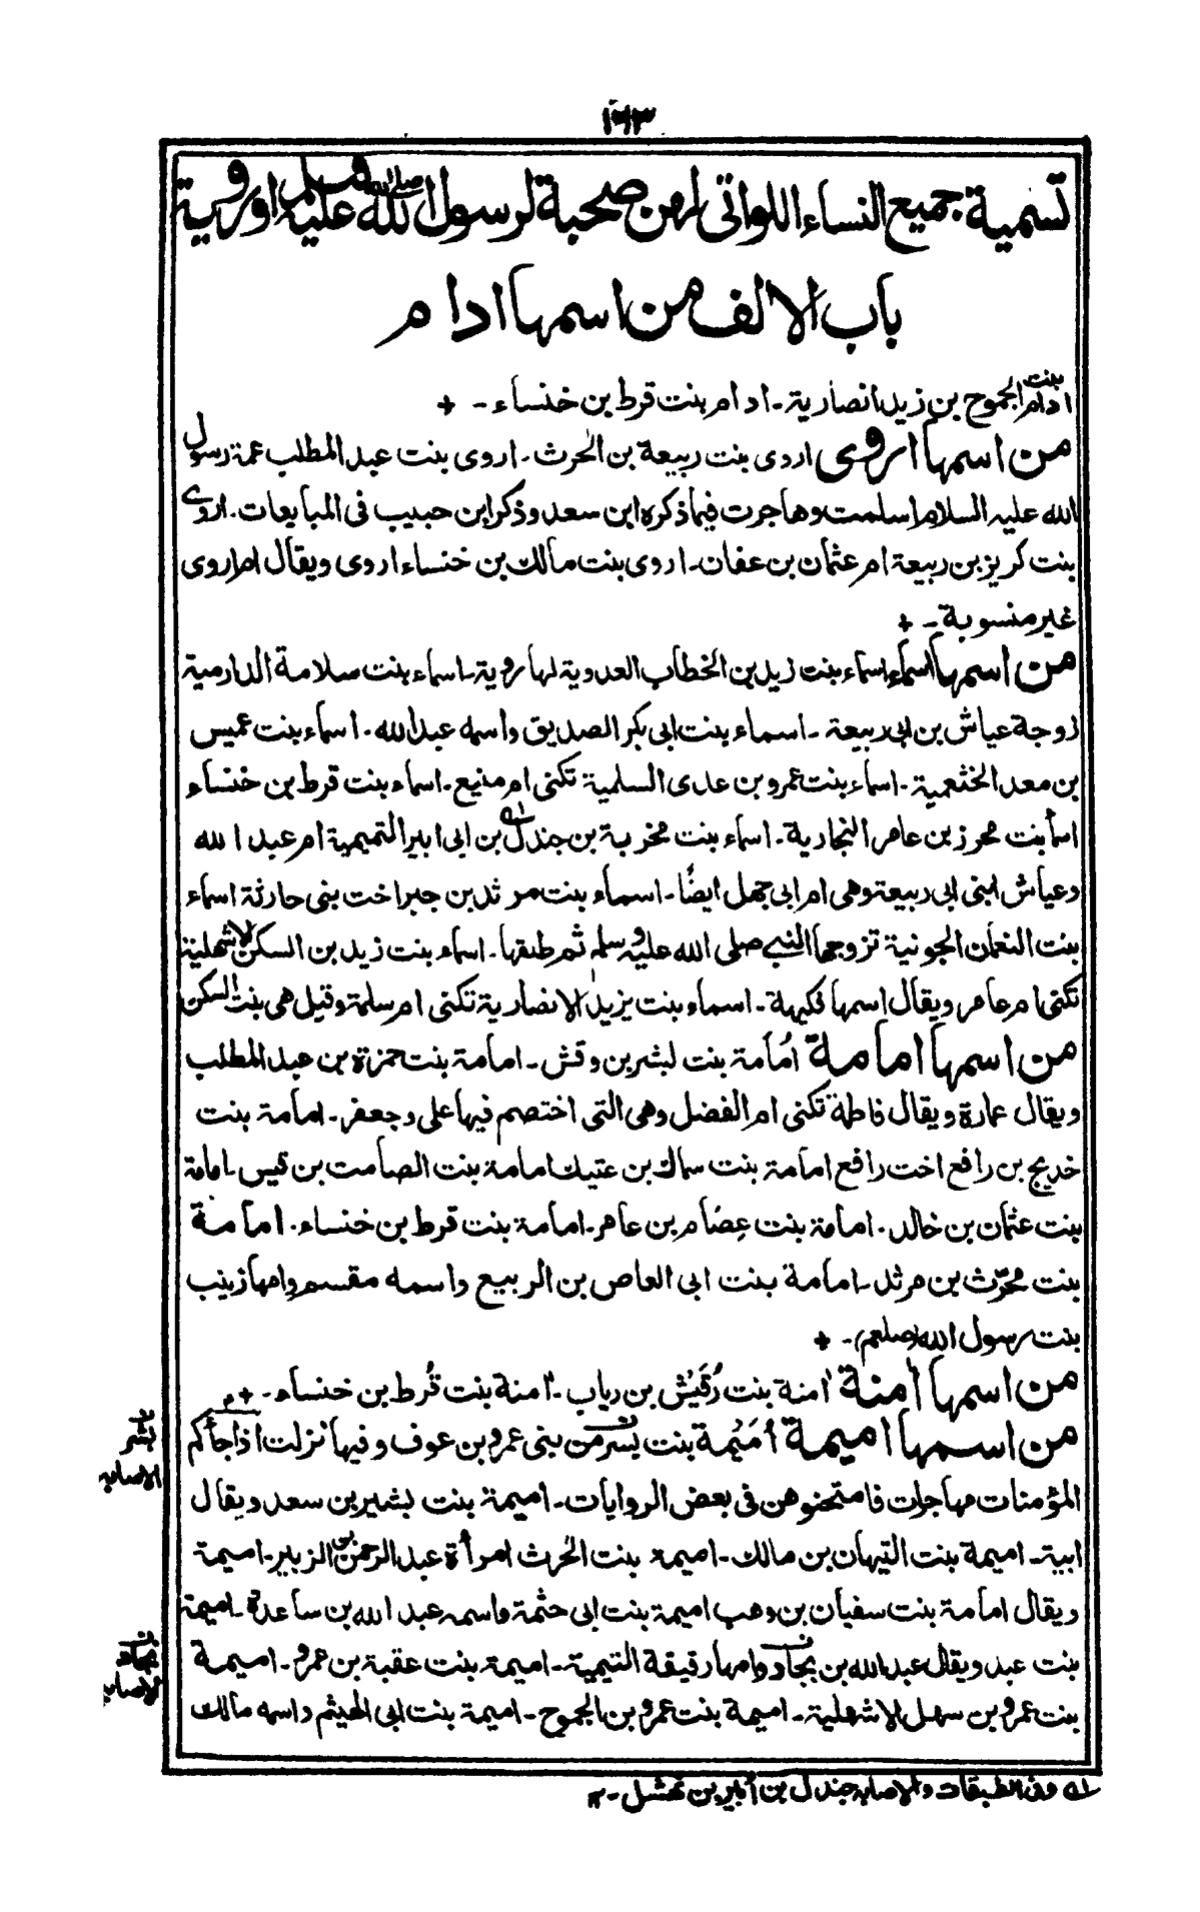 ١٦٣
تسمية جميع النساء اللواتى لهن صحبة لرسول الله صلى الله عليه وسلم او روية
باب الالف من اسمها ادام
ادام بنت الجموح بن زيد انصارية ـ ادام بنت قرط بن خنساء ـ +
من اسمها اروى اروى بنت ربيعة بن الحرث ـ اروى بنت عبد المطلب عمة رسول
الله عليه السلام اسلمت وهاجرت فيما ذكره ابن سعد وذكر ابن حبيب فى المبايعات ـ اروى
بنت كريز بن ربيعة ام عثمان بن عفان ـ اروى بنت مالك بن خنساء اروى ويقال ام اروى
غير منسوبة ـ +
من اسمها اسماء اسماء بنت زيد بن الخطاب العدوية لها روية ـ اسماء بنت سلامة الدارمية
زوجة عياش بن ابى ربيعة ـ اسماء بنت ابى بكر الصديق واسمه عبد الله ـ اسماء بنت عميس
بن معد الخثعمية ـ اسماء بنت عمرو بن عدى السلمية تكنى ام منيع ـ اسماء بنت قرط بن خنساء
اسماء بنت محرز بن عامر النجارية ـ اسماء بنت مخربة بن جندل له بن ابى ابير التميمية ام عبد الله
وعياش ابنى ابى ربيعة وهى ام ابى جهل ايضًا ـ اسماء بنت مرثد بن جبر اخت بنى حارثة اسماء
بنت النعمان الجونية تزوجها النبى صلى الله عليه وسلم ثم طلقها ـ اسماء بنت زيد بن السكن الاشهلية
تكنى ام عامر ويقال اسمها فكيهة ـ اسماء بنت يزيد الانصارية تكنى ام سلمة وقيل هى بنت السكن
من اسمها امامة امامة بنت لبشر بن وقش ـ امامة بنت حمزة بن عبد المطلب
ويقال عمارة ويقال فاطمة تكنى ام الفضل وهى التى اختصم فيها على وجعفر ـ امامة بنت
خديج بن رافع اخت رافع امامة بنت سماك بن عتيك امامة بنت الصامت بن قيس ـ امامة
بنت عثمان بن خالد ـ امامة بنت عصام بن عامر ـ امامة بنت قرط بن خنساء ـ امامة
بنت محرّث بن مرثد ـ امامة بنت ابى العاص بن الربيع واسمه مقسم وامها زينب
بنت رسول الله (صلعم) ـ +
من اسمها اٰمنة اٰمنة بنت رُقَيْش بن رياب ـ اٰمنة بنت قُرط بن خنساء ـ +
من اسمها اميمة اُمَيْمة بنت يسر من بنى عمرو بن عوف وفيها نزلت اذا جاءكم
المؤمنات مهاجرات فامتحنوهن فى بعض الروايات ـ اميمة بنت بشير بن سعد ويقال
ابية ـ اميمة بنت التيهان بن مالك ـ اميمة بنت الحٰرث امرأة عبد الرحمن بن الزبير ـ اميمة
ويقال امامة بنت سفيان بن وهب اميمة بنت ابى حثمة واسمه عبد الله بن ساعدة ـ اميمة
بنت عبد ويقال عبد الله بن بجاد وامها رقيقة التيمية ـ اميمة بنت عقبة بن عمرو ـ اميمة
بنت عمرو بن سهل الاشهلية ـ اميمة بنت عمرو بن الجموح ـ اميمة بنت ابى الهيثم واسمه مالك
ن بشر
الاصابه
ن بجاد
الاصابه
له وفى الطبقات والاصابه جندل بن أبير بن نهشل ـ ١٢